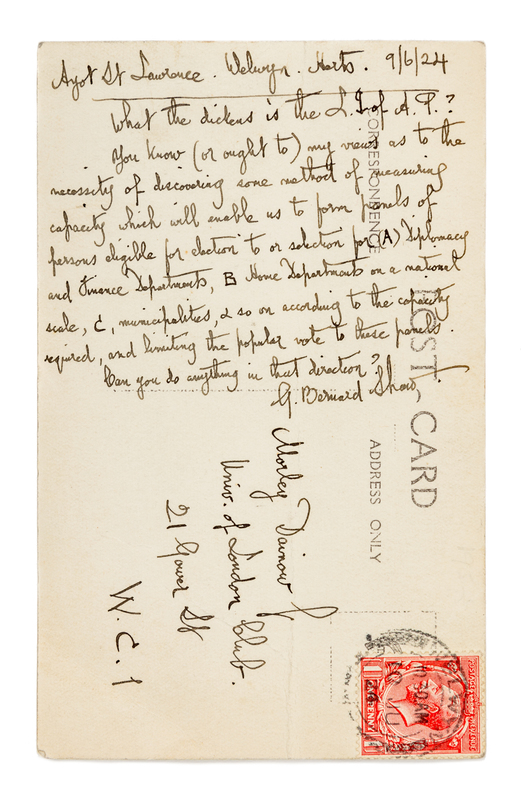 Ayot St Lawrence. Welwyn. Herts. 9/6/24
What the dickens is the L.I. of A.P.?
You know (or ought to) my views as to the
necessity of discovering some method of measuring
capacity which will enable us to form panels of
persons eligible for election to or selection for (A) Diplomacy
and Finance Departments, B Home Departments on a national
scale, C, municipalities, & so on according to the capacity
required, and limiting the popular vote to these panels.
Can you do anything in that direction?
G. Bernard Shaw
CORRESPONDENCE
POST CARD
ADDRESS ONLY
Morley Dainow
Univ. of London Club.
21 Gower St
W.C.1
ONE PENNY